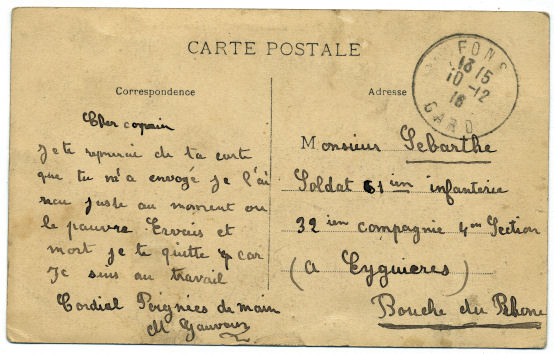 CARTE POSTALE
Correspondence
Adresse
FONS
13 15
10-12
16
GARD
Cher copain
je te remercie de ta carte
que tu m'a envoyé je l'ai
reçu juste au moment ou
le pauvre Ervais et
mort je te quitte car
Je suis au travail
Cordial Poignées de main
M Gauveur
Monsieur Lebarthe
Soldat 61 ièm infanterie
32 ièm compagnie 4em Section
(a Eyguieres)
Bouche du Rhone